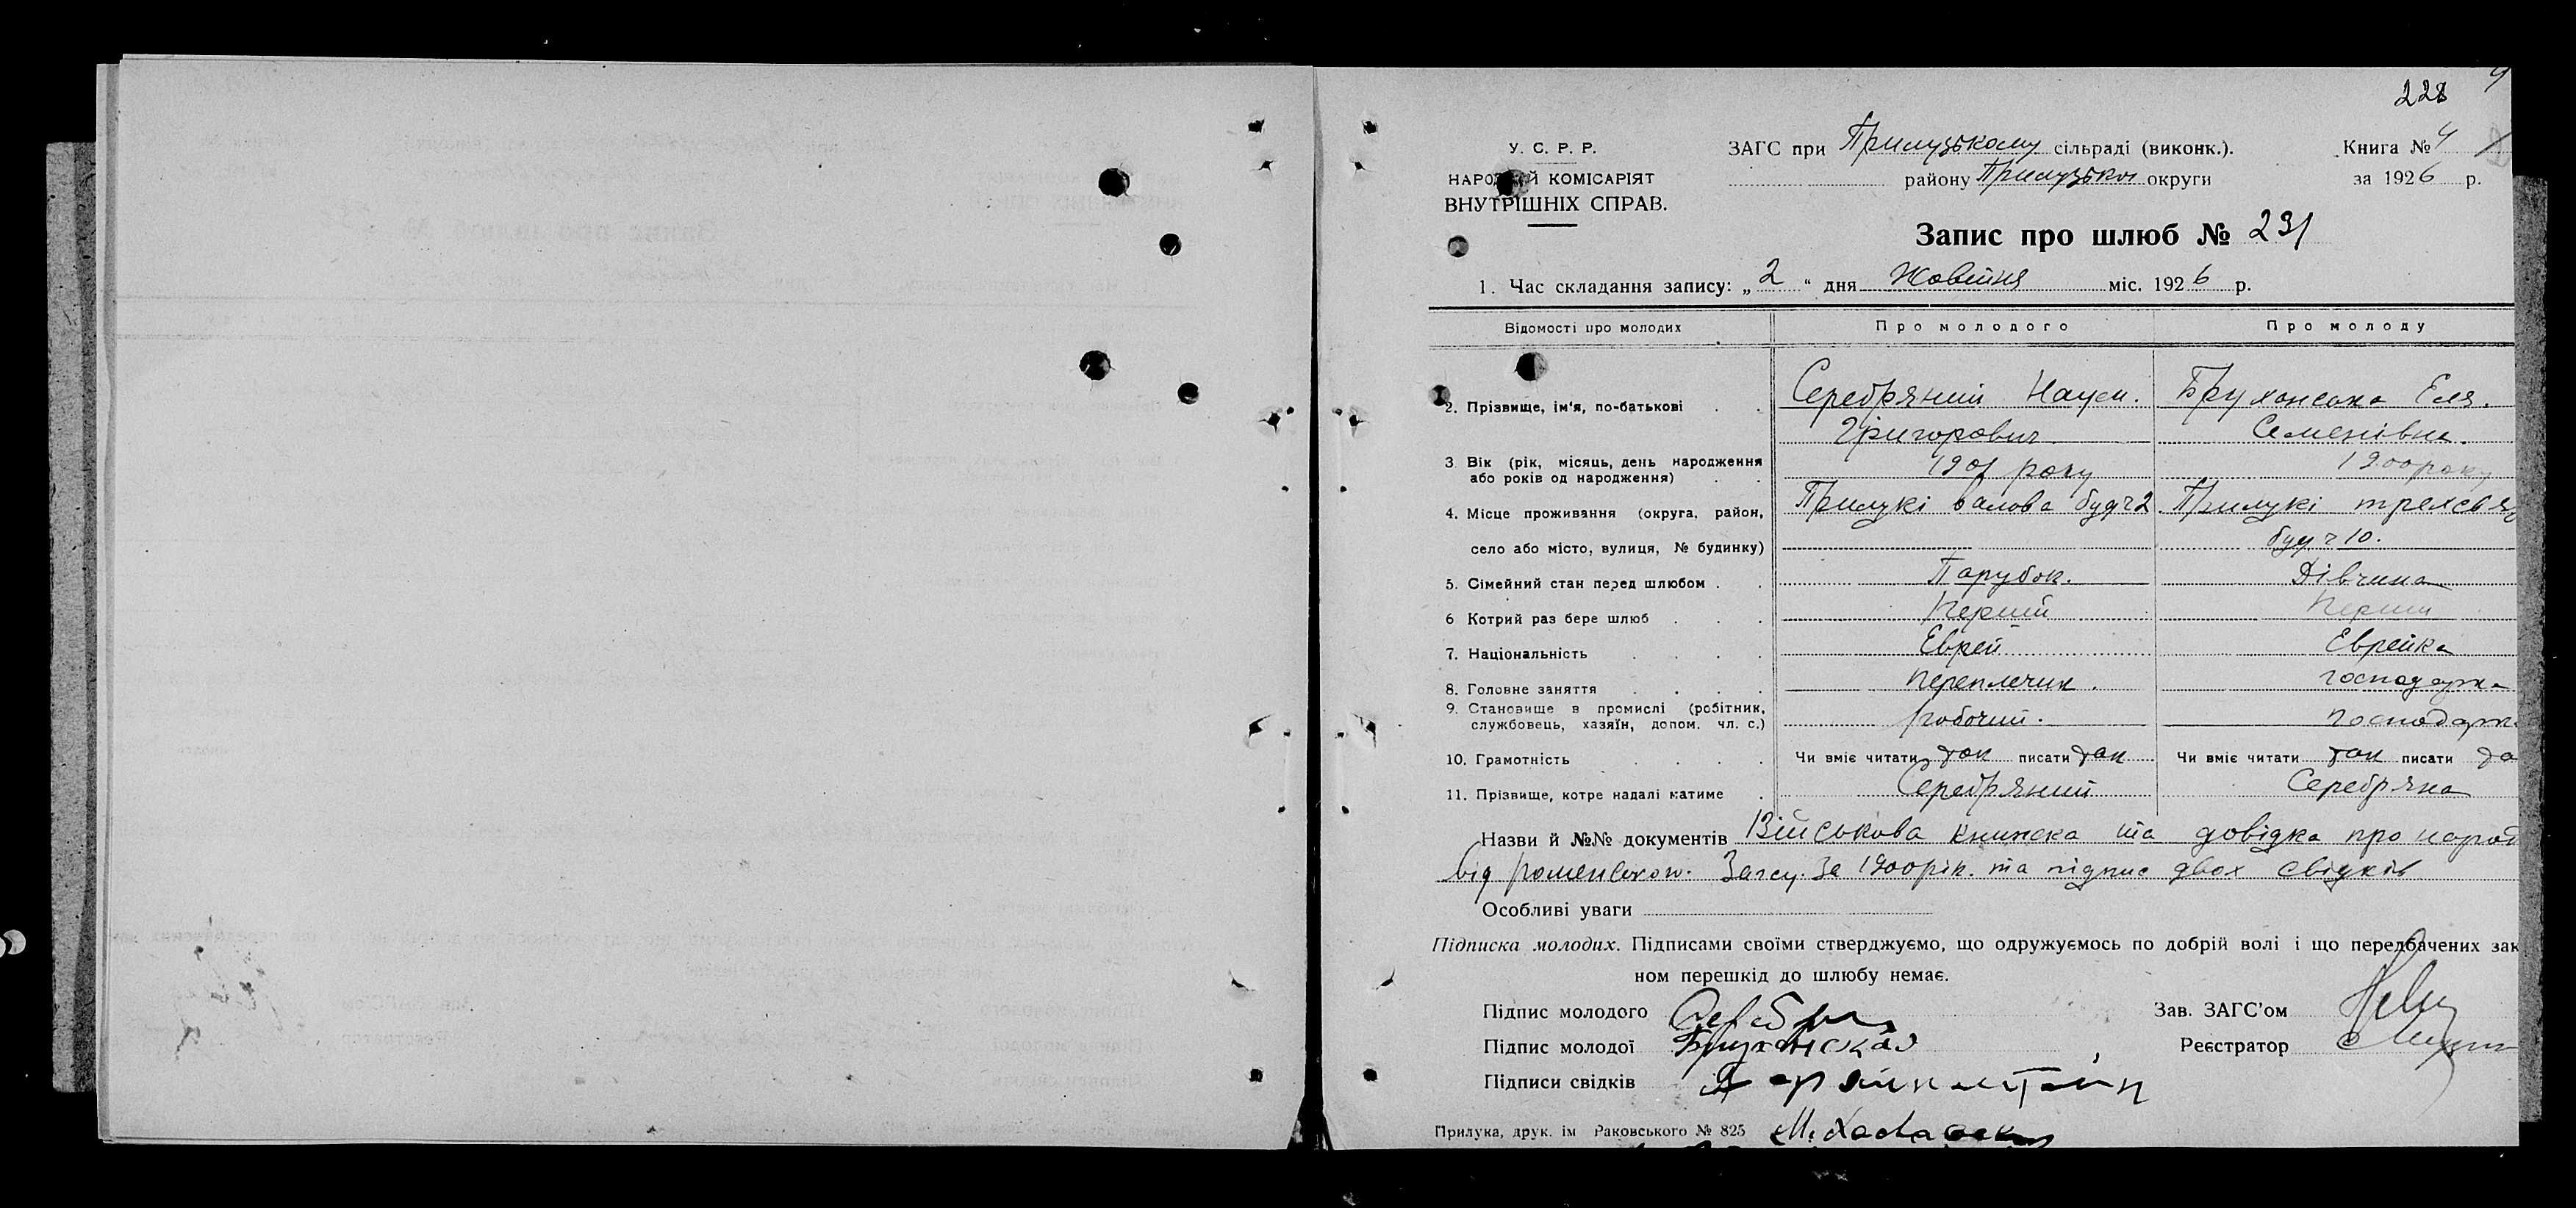 228
У. С. Р. Р.
НАРОДНИЙ КОМІСАРІЯТ
ВНУТРІШНІХ СПРАВ.
ЗАГС при Прилуцькому сільраді (виконк.).
району Прилуцької округи
Книга № 4
за 1926 р.
Запис про шлюб № 231
1. Час складання запису: „ 2 “ дня Жовтня міс. 1926 р.
Відомості про молодих Про молодого Про молоду
2. Прізвище, ім'я, по-батькові . . Серебряний Наум. Бруханська Еля.
Григорович Семенівна.
3 Вік (рік, місяць, день народження
або років од народження) . . 1901 року 1900 року
4. Місце проживання (округа, район, Прилукі валова буд ч 2 Прилукі трехсвя
село або місто, вулиця, № будинку) буд ч 10.
5. Сімейний стан перед шлюбом . . Парубок. Дівчина
6 Котрий раз бере шлюб . . . Перший Перший
7. Національність . . . . Еврей Еврейка
8. Головне заняття . . . . Переплечик. господарка
9. Становище в промислі (робітник,
службовець, хазяїн, допом. чл. с.) робочий. господарк
10. Грамотність . . . . Чи вміє читати так писати так Чи вміє читати так писати та
11. Прізвище, котре надалі матиме . Серебряний Серебряна
Назви й №№ документів Військова книжка та довідка про народ
від роменского. Загсу. За 1900 рік. та підпис двох свідків
Особливі уваги
Підписка молодих. Підписами своїми стверджуємо, що одружуємось по добрій волі і що передбачених зак
ном перешкід до шлюбу немає.
Підпис молодого Серебрян
Зав. ЗАГС'ом
Підпис молодої Бруханская
Реєстратор
Підписи свідків
Прилука, друк. ім Раковського № 825